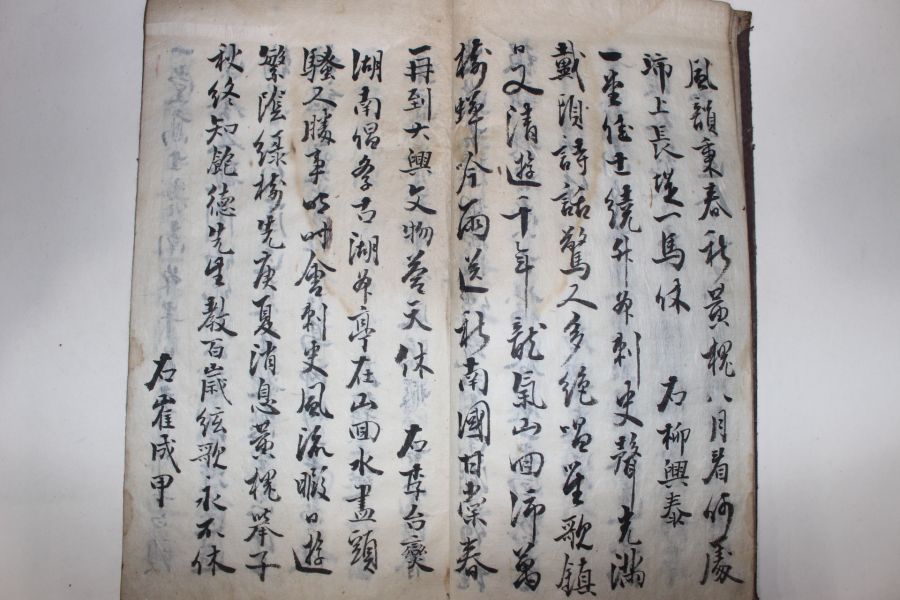 風韻秉春秋黃槐八月着何處
沛上長堤一馬休　　右柳興泰
一堂佳士繞外參刺史聲光滿
戴頭詩話驚人多絶唱笙歌鎭
日又淸遊千年龍氣山回沛萬
樹蟬吟雨送秋南國甘棠春
再到大興文物荅天休　　右李台奭
湖南倡學古湖參亭在山回水盡頭
騷人勝事此時會刺史風流暇日遊
繁陰綠樹先庚夏消息黃槐擧子
秋終知飽德先生敎百歲絃歌永不休
右崔成甲